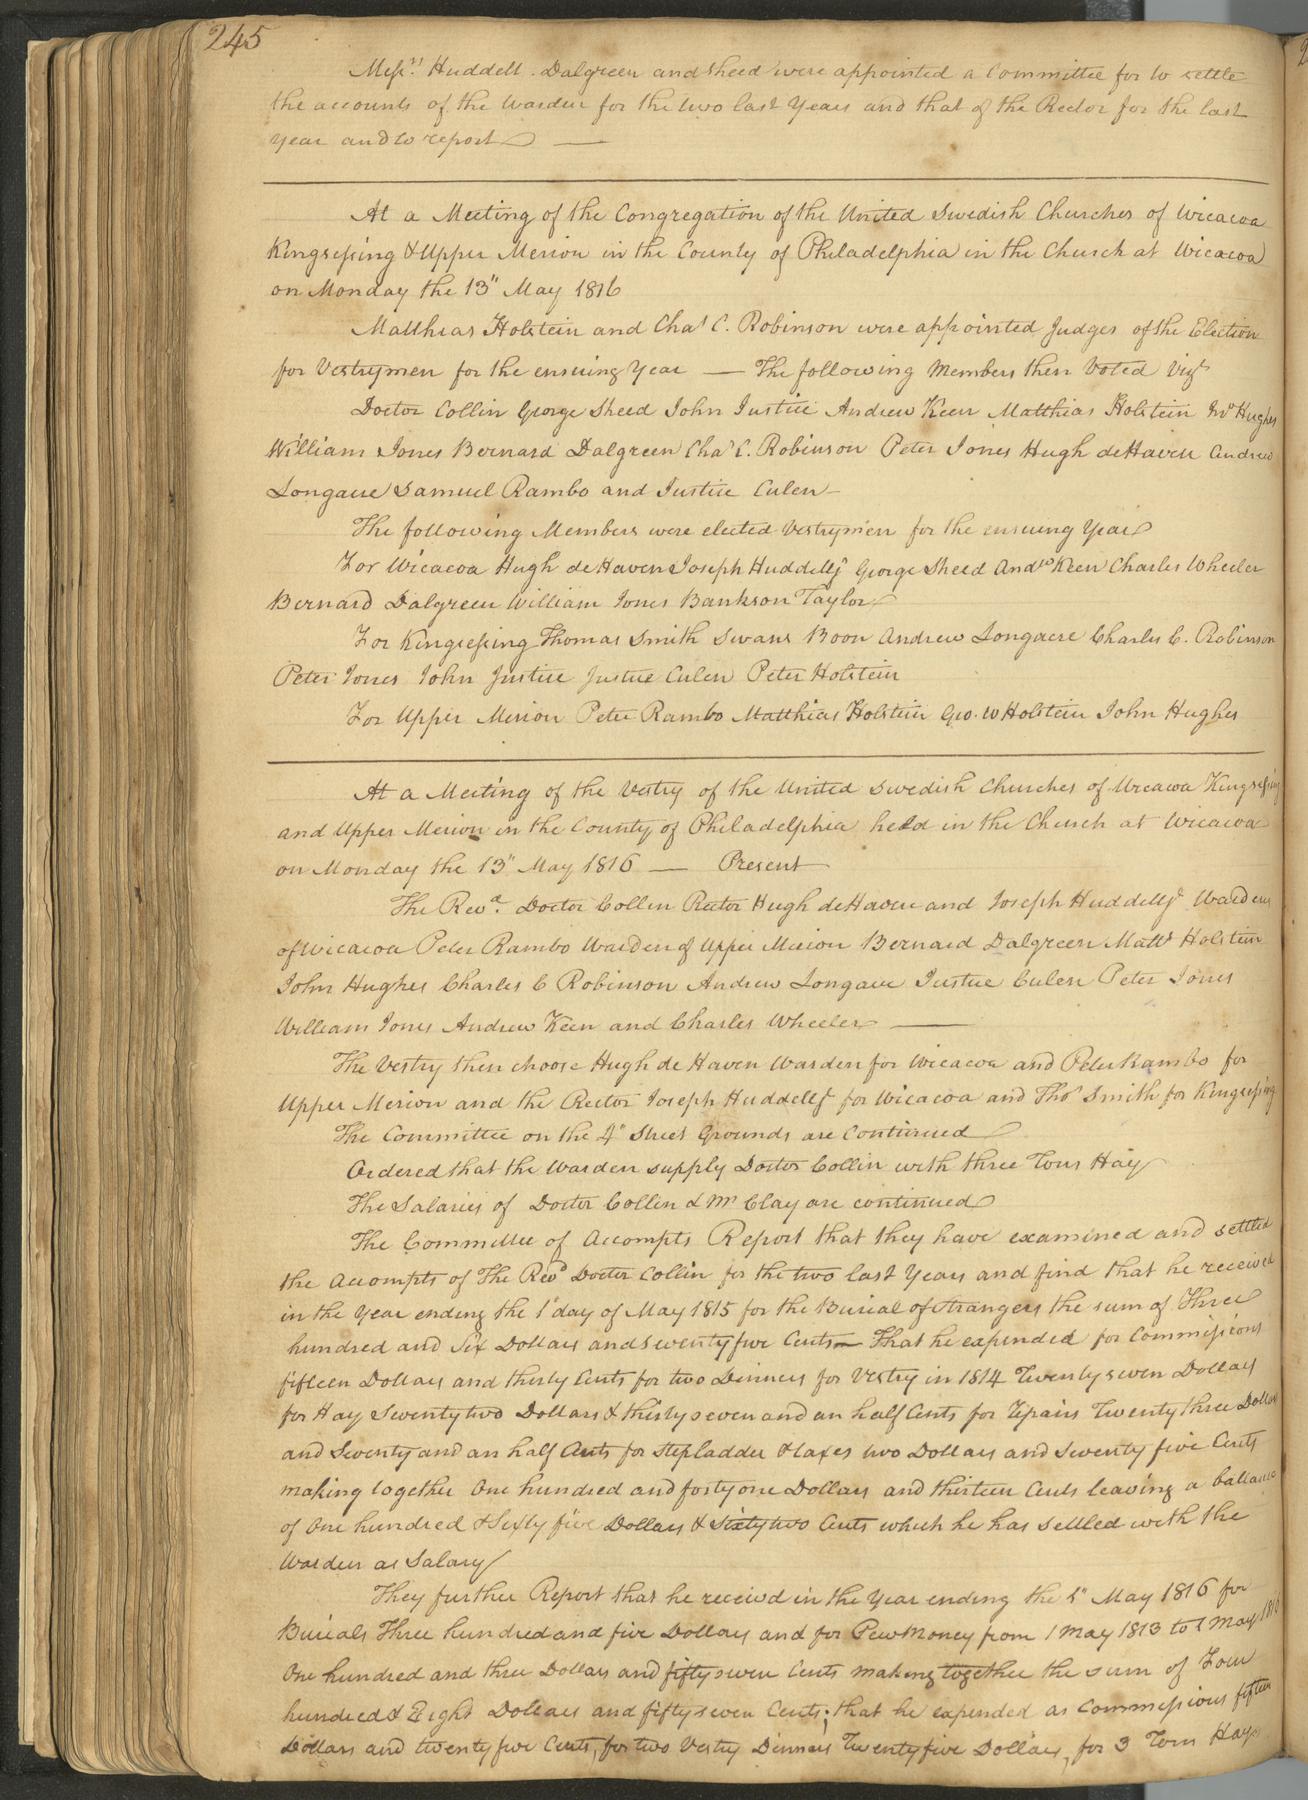 245
Messrs. Huddell. Dalgreen and Sheed were appointed a Committee for to settle
the accounts of the Warden for the two last Years and that of the Rector for the last
year and to report —
At a Meeting of the Congregation of the United Swedish Churches of Wicacoa
Kingsessing & Upper Merion in the County of Philadelphia in the Church at Wicacoa
on Monday the 13" May 1816
Matthias Holstein and Chas C. Robinson were appointed Judges of the Election
for Vestrymen for the ensuing Year — The following Members then Voted Vizt
Doctor Collin George Sheed John Justice Andrew Keen Matthias Holstein Jno Hughes
William Jones Bernard Dalgreen Chas C. Robinson Peter Jones Hugh deHaven Andrew
Longacre Samuel Rambo and Justice Culen —
The following Members were elected Vestrymen for the ensuing Year
For Wicacoa Hugh de Haven Joseph Huddell Jr George Sheed Andw Keen Charles Wheeler
Bernard Dalgreen William Jones Bankson Taylor
For Kingsessing Thomas Smith Swans Boon Andrew Longacre Charles C. Robinson
Peter Jones John Justice Justice Culen Peter Holstein
For Upper Merion Peter Rambo Matthias Holstein Geo. W Holstein John Hughes
At a Meeting of the Vestry of the United Swedish Churches of Wicacoa Kingsessing
and Upper Merion in the County of Philadelphia held in the Church at Wicacoa
on Monday the 13" May 1816 — Present
The Revd. Doctor Collin Rector Hugh deHaven and Joseph Huddell Jr Wardens
of Wicacoa Peter Rambo Warden of Upper Merion Bernard Dalgreen Matts Holstein
John Hughes Charles C Robinson Andrew Longacre Justice Culen Peter Jones
William Jones Andrew Keen and Charles Wheeler —
The Vestry then choose Hugh de Haven Warden for Wicacoa and Peter Rambo for
Upper Merion and the Rector Joseph Huddell Jr for Wicacoa and Thos Smith for Kingsessing
The Committee on the 4" Street Grounds are Continued
Ordered that the Warden supply Doctor Collin with three Tons Hay
The Salaries of Doctor Collin & Mr Clay are continued
The Committee of Accompts Report that they have examined and settled
the Accompts of The Revd Doctor Collin for the two last Years and find that he received
in the Year ending the 1" day of May 1815 for the Burial of Strangers the sum of Three
hundred and Six Dollars and seventy five Cents — That he expended for Commissions
fifteen Dollars and thirty Cents for two Dinners for Vestry in 1814 Twenty seven Dollars
for Hay Seventy two Dollars & thirty seven and an half Cents for Repairs Twenty three Dollars
and Seventy and an half Cents for Stepladder & taxes two Dollars and Seventy five Cents
making together One hundred and forty one Dollars and thirteen Cents leaving a ballance
of One hundred & Sixty five Dollars & Sixty two Cents which he has settled with the
Warden as Salary
They further Report that he received in the Year ending the 1" May 1816 for
Burials Three hundred and five Dollars and for Pew Money from 1 May 1813 to 1 May 1816
One hundred and three Dollars and fifty seven Cents making together the sum of Four
hundred & Eight Dollars and fifty seven Cents; that he expended as Commissions fifteen
Dollars and twenty five Cents, for two Vestry Dinners Twenty five Dollars, for 3 Tons Hay